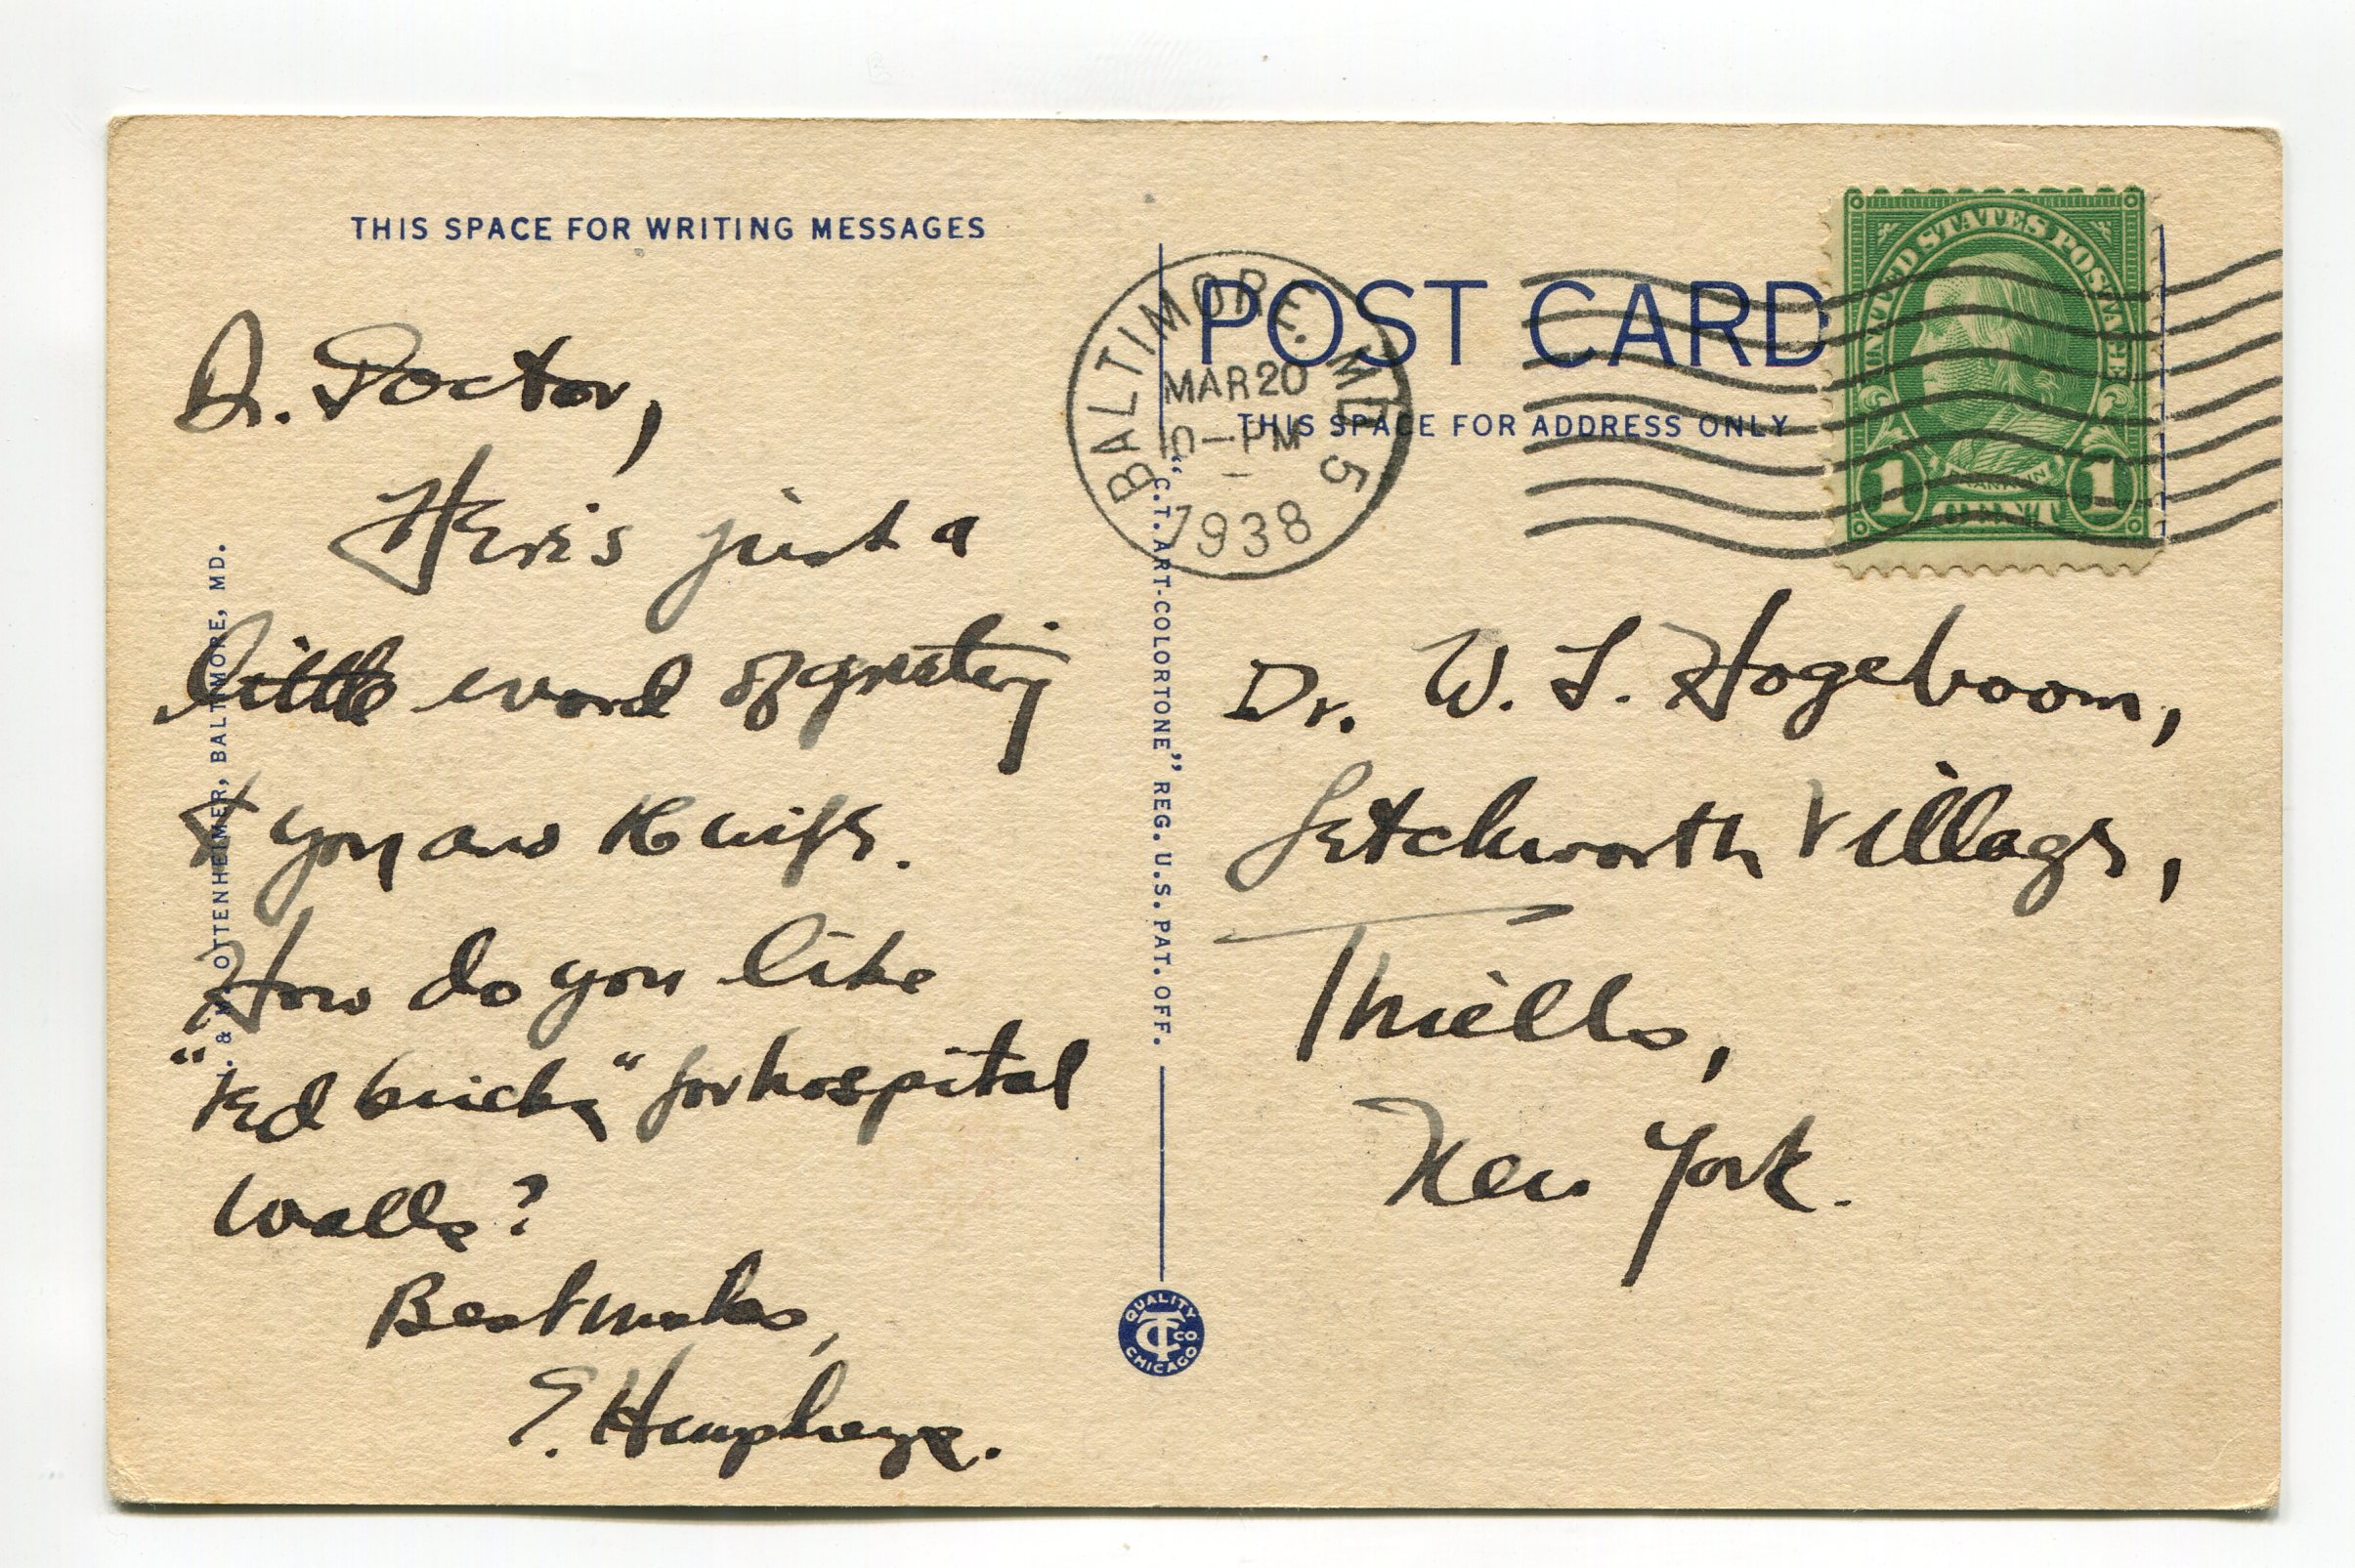 THIS SPACE FOR WRITING MESSAGES
Dr. Doctor,
Here's just a
little word of greeting
to you and the wife.
How do you like
"red bricks" for hospital
walls?
Best wishes,
E. Humphreys.
& OTTENHEIMER, BALTIMORE, MD.
"C.T. ART-COLORTONE" REG. U.S. PAT. OFF.
QUALITY
CT CO
CHICAGO
POST CARD
THIS SPACE FOR ADDRESS ONLY
BALTIMORE. MD. 5
MAR 20
PM
1938
UNITED STATES POSTAGE
FRANKLIN
1 CENT 1
Dr. W. L. Hogeboom,
Letchworth Village,
Thiells,
New York.